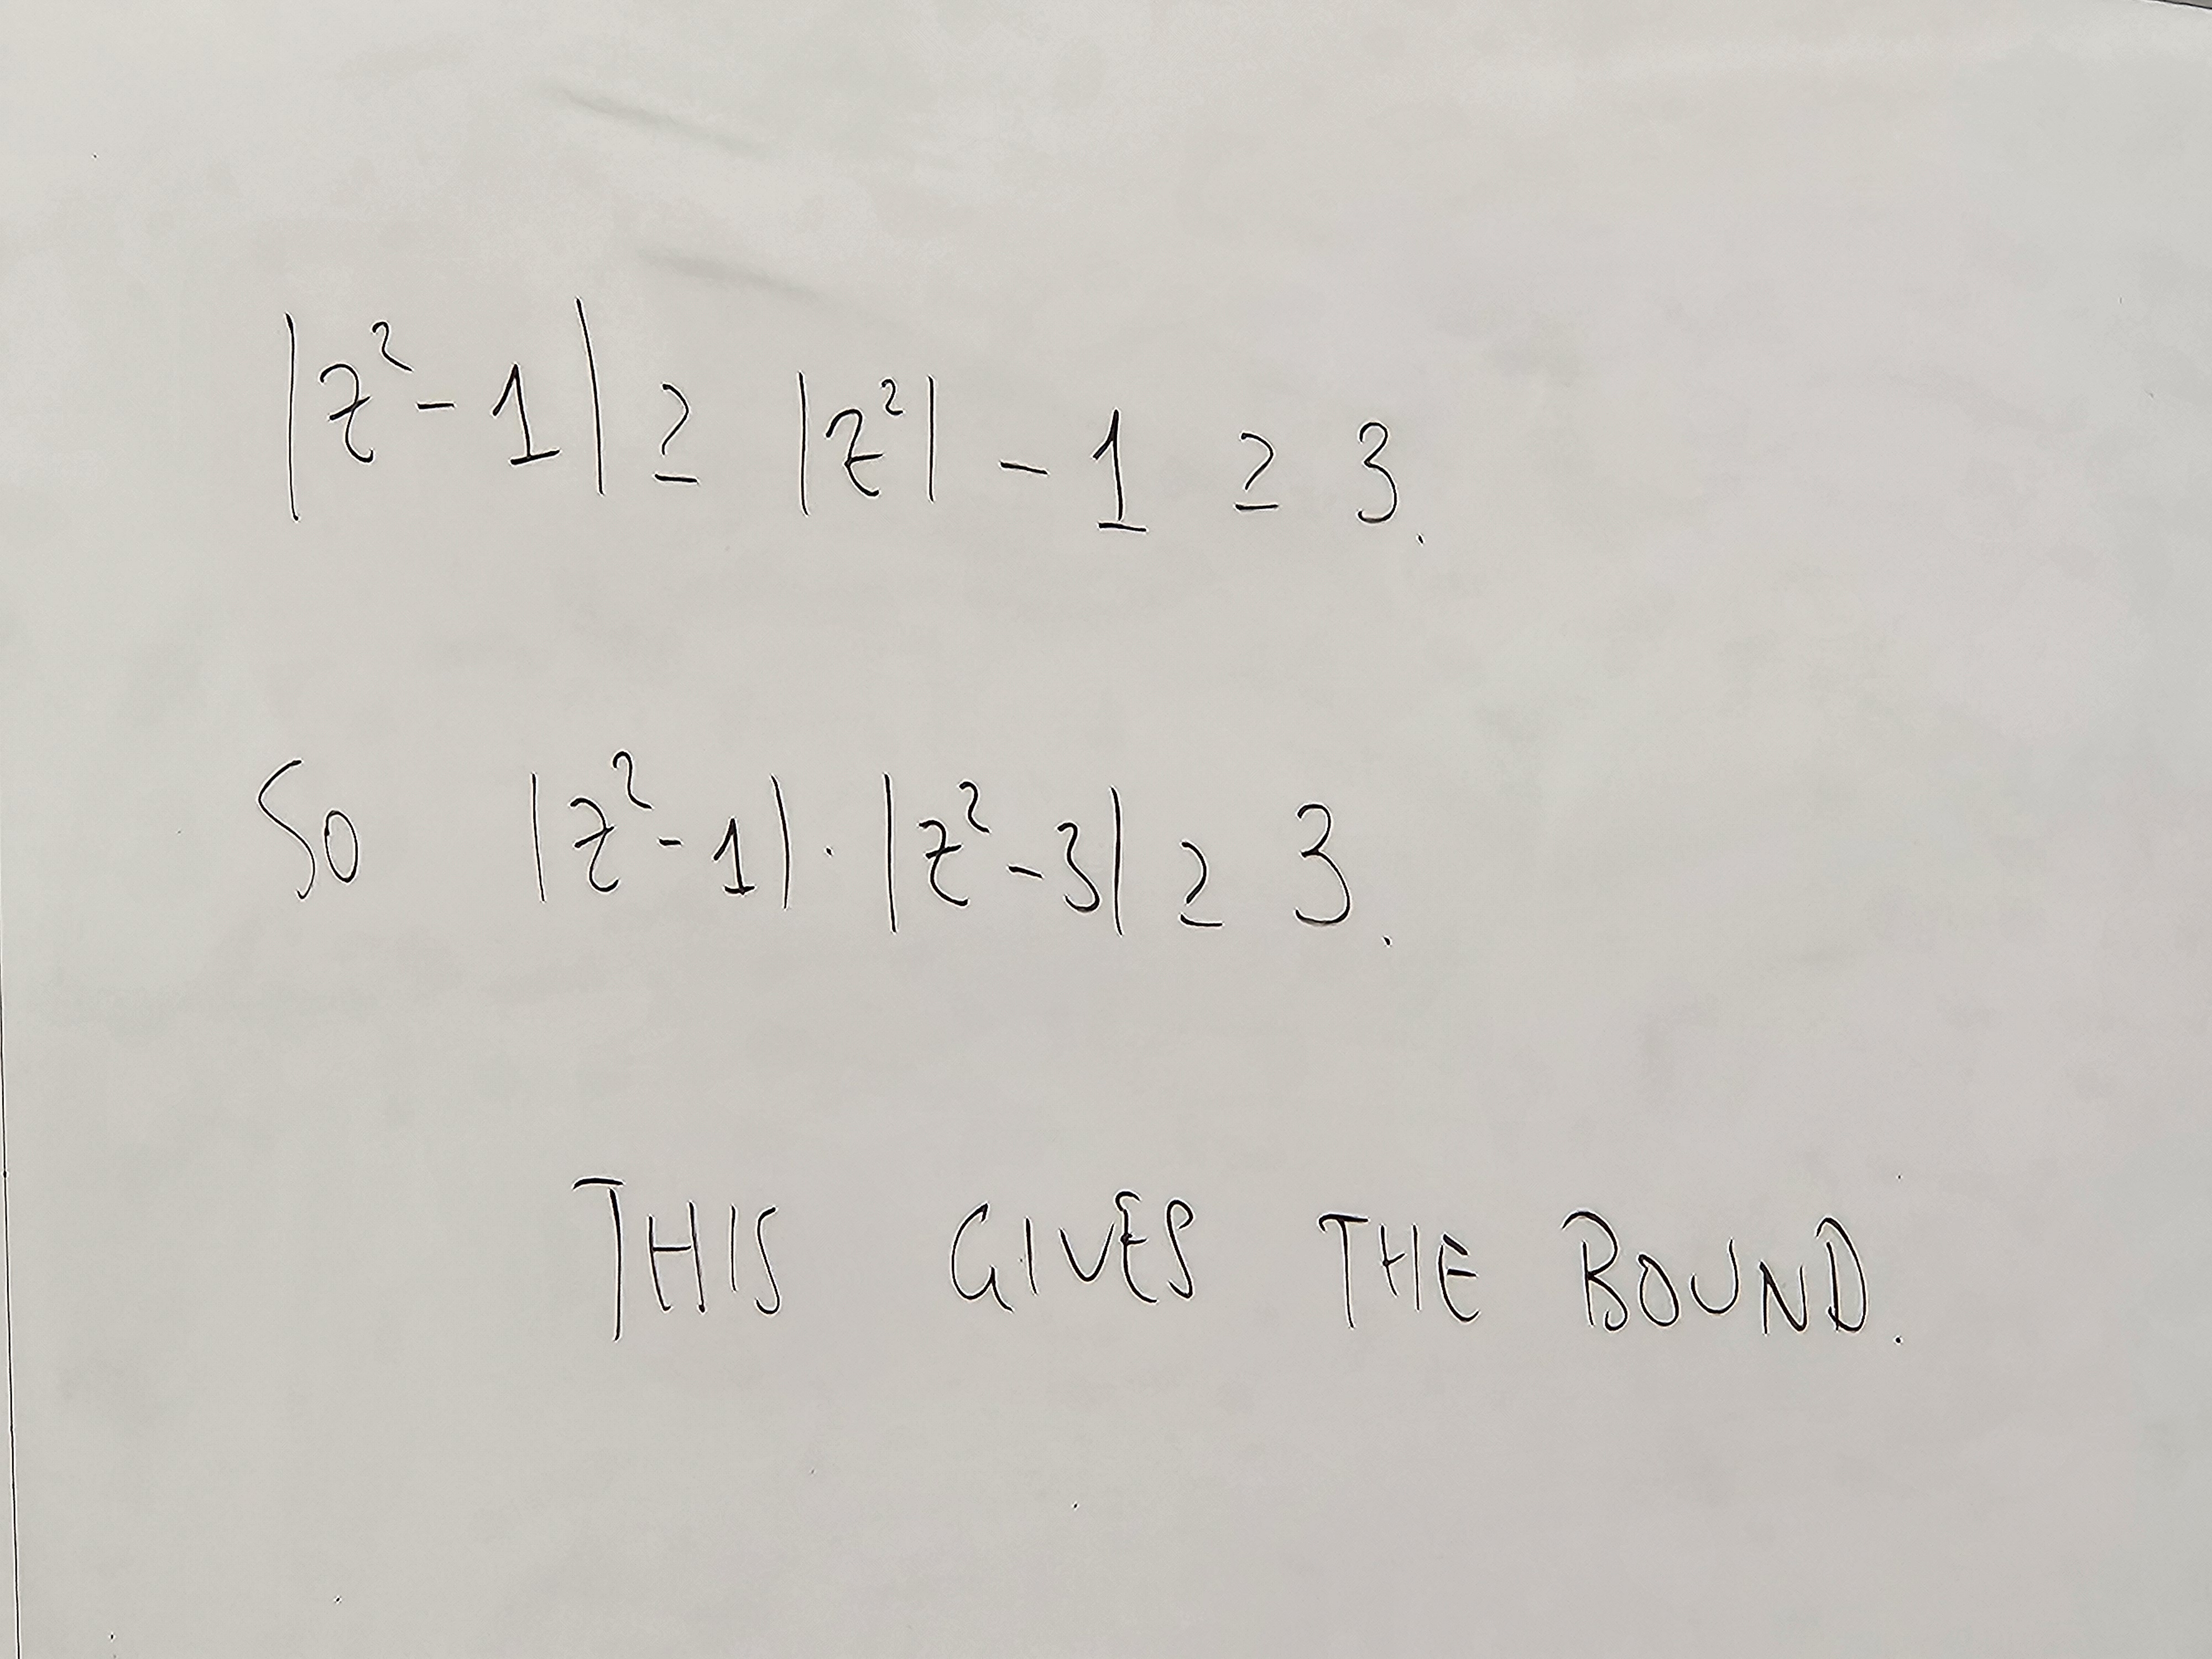 |z²-1| ≥ |z²| - 1 ≥ 3.
So |z²-1|·|z²-3| ≥ 3.
THIS GIVES THE BOUND.